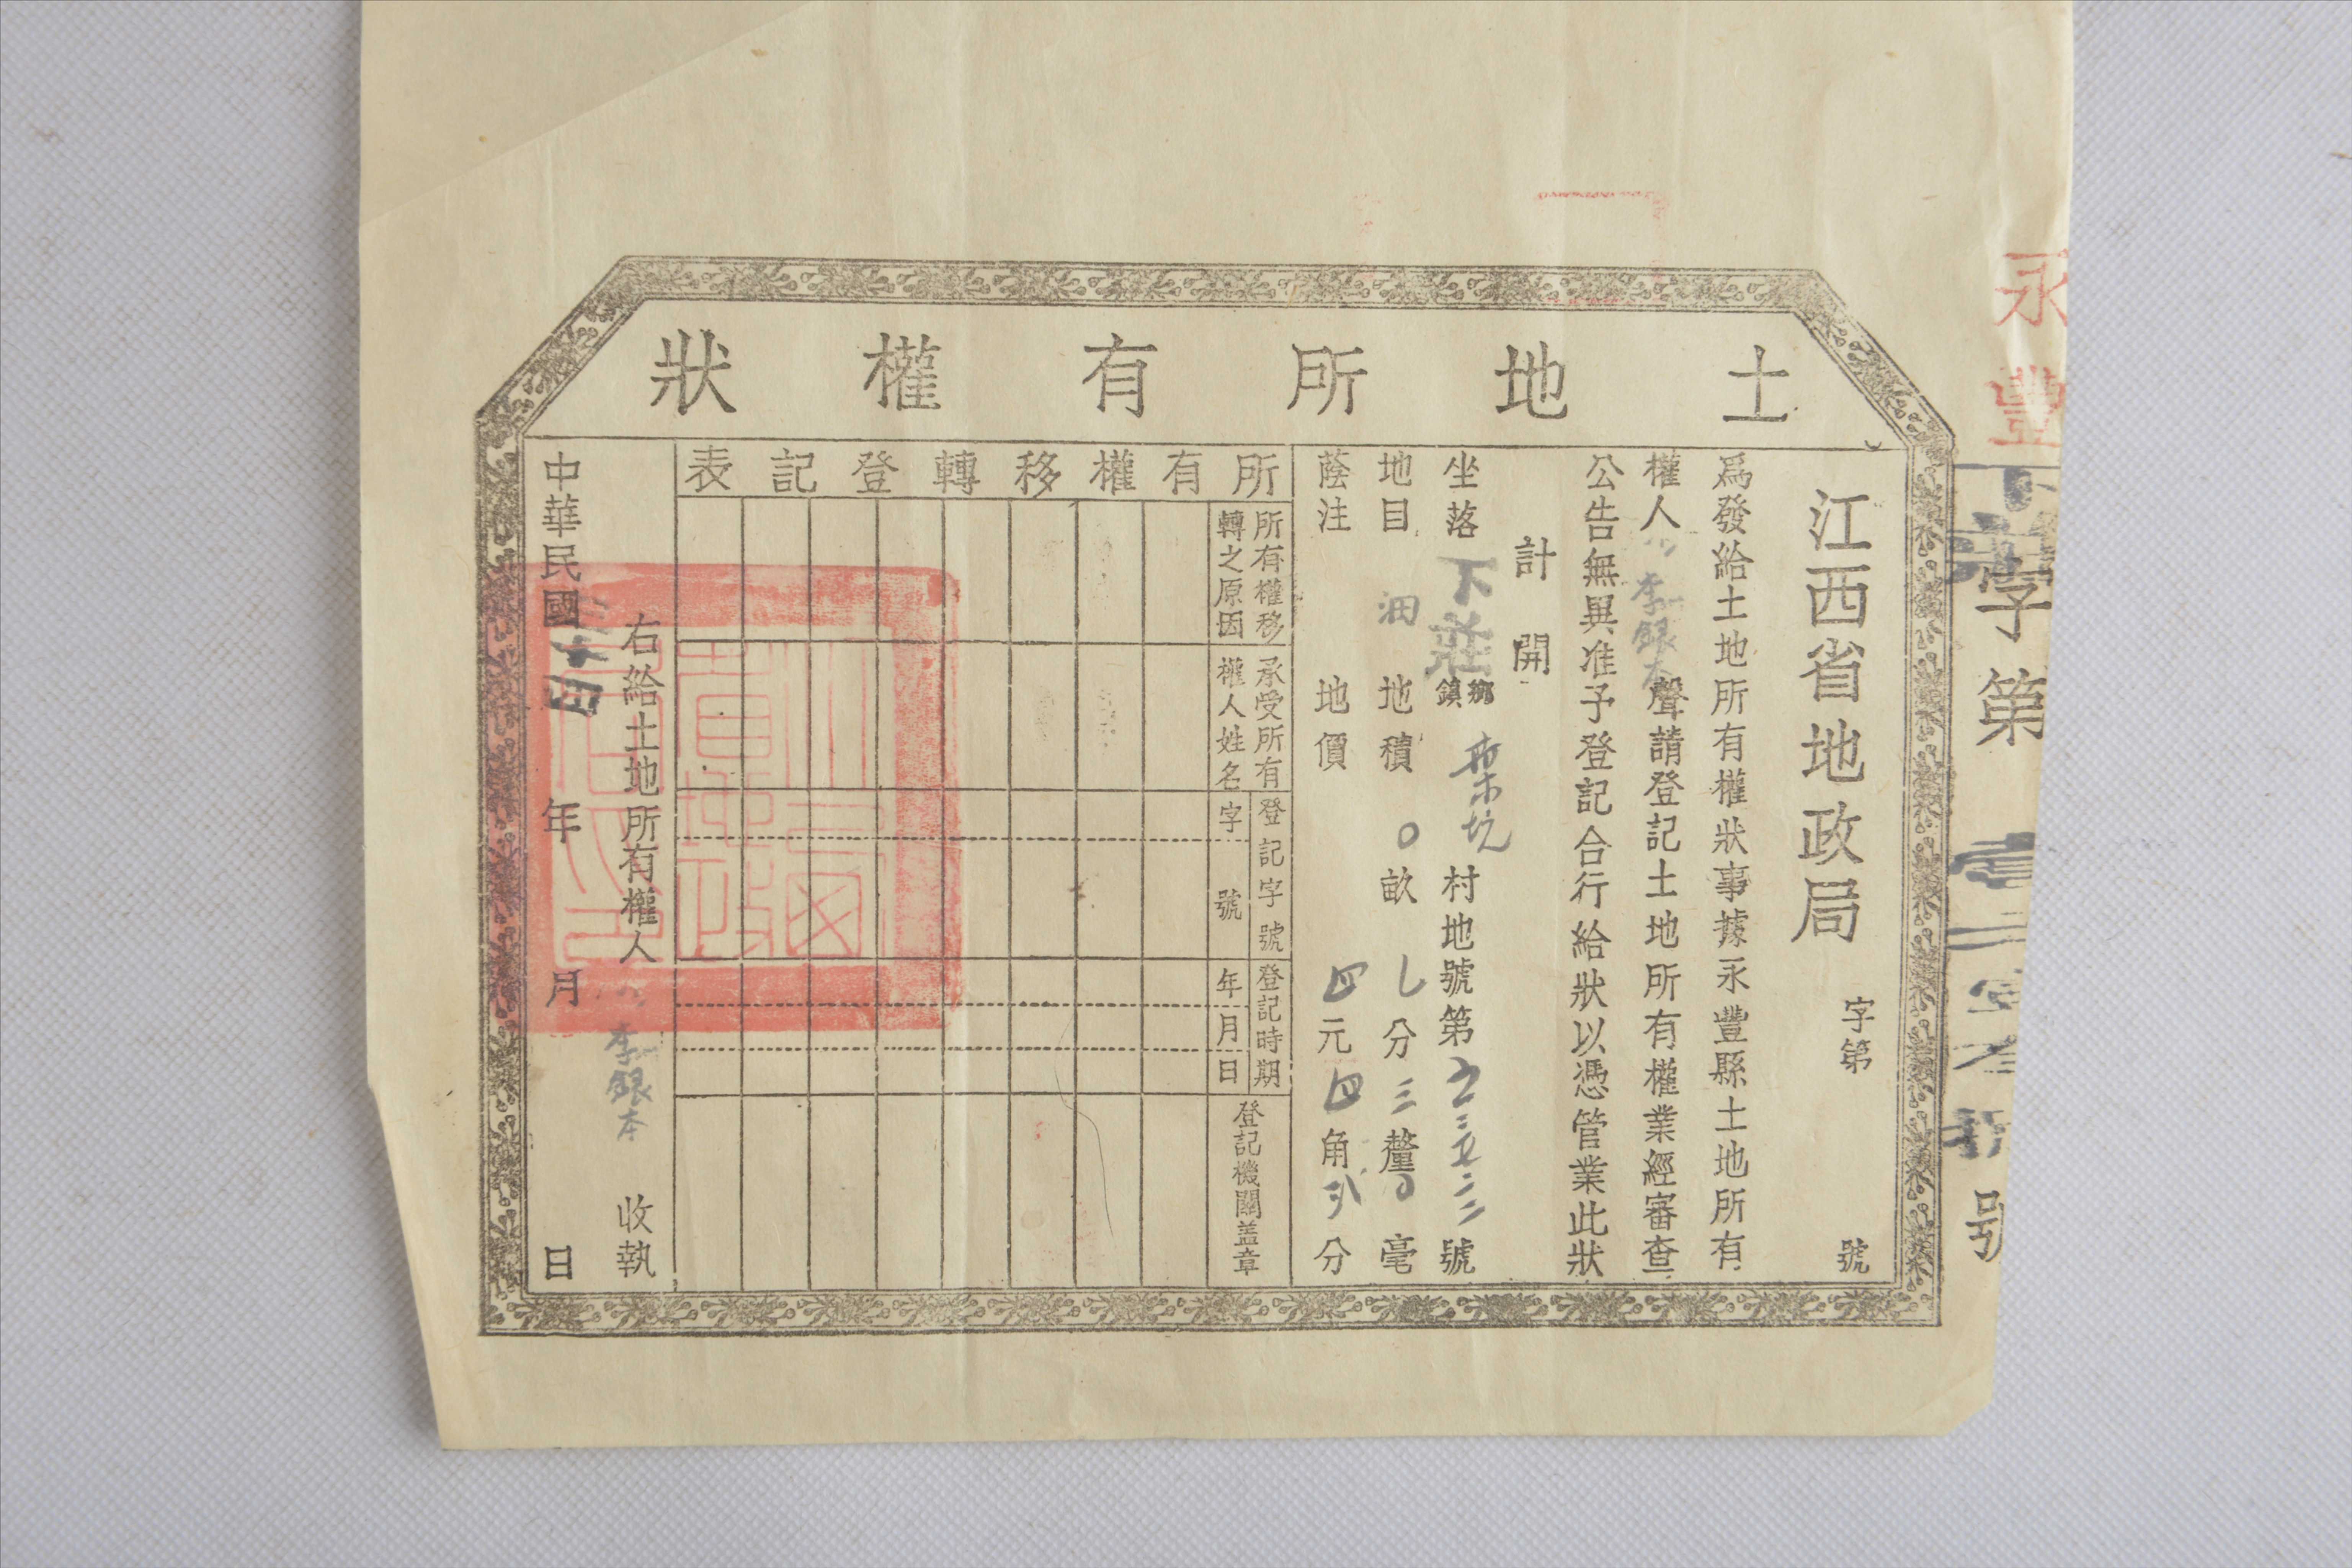 土地所有權狀
永豐
字第
號
江西省地政局
字第 號
爲發給土地所有權狀事據永豐縣土地所有
權人 李銀本 聲請登記土地所有權業經審查
公告無異准予登記合行給狀以憑管業此狀
計開
坐落 下莊 鄉鎮 村地號第 號
地目 地積 〇畝 分三釐〇毫
蔭注 地價 四元四角 分
所有權移轉登記表
所有權移轉之原因
承受所有權人姓名
登記字號
字 號
登記時期
年月日
登記機關盖章
右給土地所有權人 李銀本 收執
中華民國 年 月 日